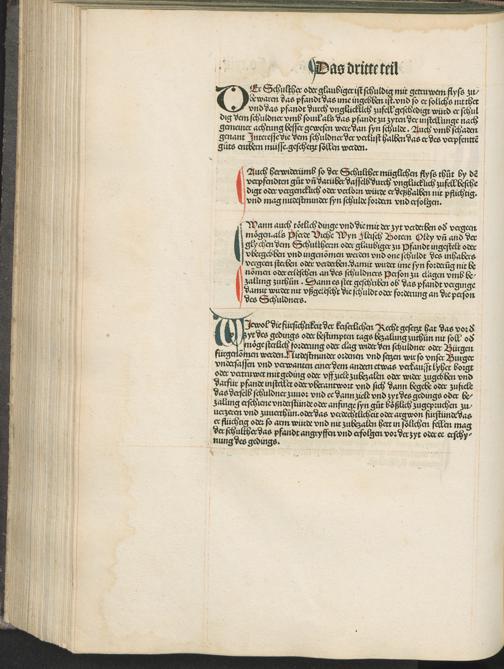 Das dritte teil
DEr Schulther oder glaubiger ist schuldig mit getruwem flyss zu
bewaren das pfandt das ime ingeben ist. vnd so er solichs nit thet
vnd das pfandt durch vnglücklich zufell geschedigt würd er schul
dig dem schuldner vmb souil als das pfandt zu zyten der instellunge nach
gemeiner achtung besser gewesen wer dan syn schulde. Auch vmb schaden
genant Interesse die dem schuldner der verlust halben das er des verpfenten
güts entbern müsse. geschetzt söllen werden.
Auch herwiderumb so der Schulther müglichen flyss thüt by dē
verpfendten güt vn̄ darüber dasselb durch vnglücklich zufell besche
digt oder vergencklich oder verlorn würde er deßhalben nit pflichtig.
vnd mag nüdestmunder syn schulde fordern vnd erfolgen.
Wann auch tötlich dinge vnd die mit der zyt verderben oď vergeen
mögen. als Pferde Viche Wyn fleisch Botern Oley vn̄ and der
glychen dem Schultherrn oder glaubiger zu Pfandt ingestelt oder
übergeben vnd ingenomen werden vnd one schuld des inhabers
vergeen sterben oder verderben. damit würdet ime syn fordeung nit be
nomen oder erleschen an des schuldners Person zu clagen vmb be-
zalung zuthün. Dann es ist geschriben ob das pfandt vergunge
damit würdet nit vßgelescht die schuldt oder forderung an die person
des Schuldners.
WIewol die fürsichtikeit der keiserlichen Recht gesetzt hat das vor ď
zyt des gedings oder bestimpten tags bezalung zuthün nit soll oď
möge stetlich forderung oder clag wider den schuldner oder Bürgen
fürgenomen werden. Nüdestmunder ordenen vnd setzen wir so vnser Burger
vndersassen vnd verwanten einer dem andern etwas verkaufft lyhet borget
oder vertruwet mit geding oder vff ziele zubezalen oder wider zugeben vnd
darfür pfande instellet oder vberantwort vnd sich dann begebe oder zufiele
das derselb schuldner zuuor vnd ee dann ziele vnd zyt des gedings oder be-
zalung erschienē vnderstünde oder anfinge syn güt bößlich zugeprüchen zu-
uerzeren vnd zuuerthün. oder das verdechtlicheit oder argwon fürstünde das
er flüchtig oder so arm würde vnd nit zubezalen hett in sollichen fellen mag
der schulther das pfandt angryffen vnd erfolgen vor der zyt oder ee erschy-
nung des gedings.